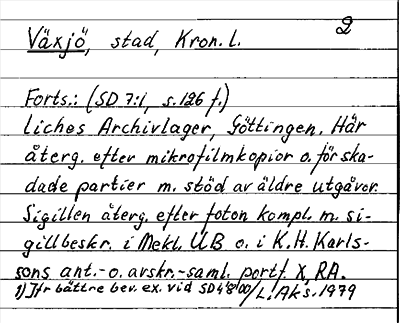 2
Växjö, stad, Kron. l.
Forts.: (SD 7:1, s. 126 f.)
liches Archivlager, Göttingen. Här
återg. efter mikrofilmkopior o. för ska-
dade partier m. stöd av äldre utgåvor.
Sigillen återg. efter foton kompl. m. si-
gillbeskr. i Mekl. UB o. i K.H. Karls-
sons ant.- o. avskr.-saml. portf. X, RA.
1) Jfr bättre bev. ex. vid SD 4800/L. Aks. 1979